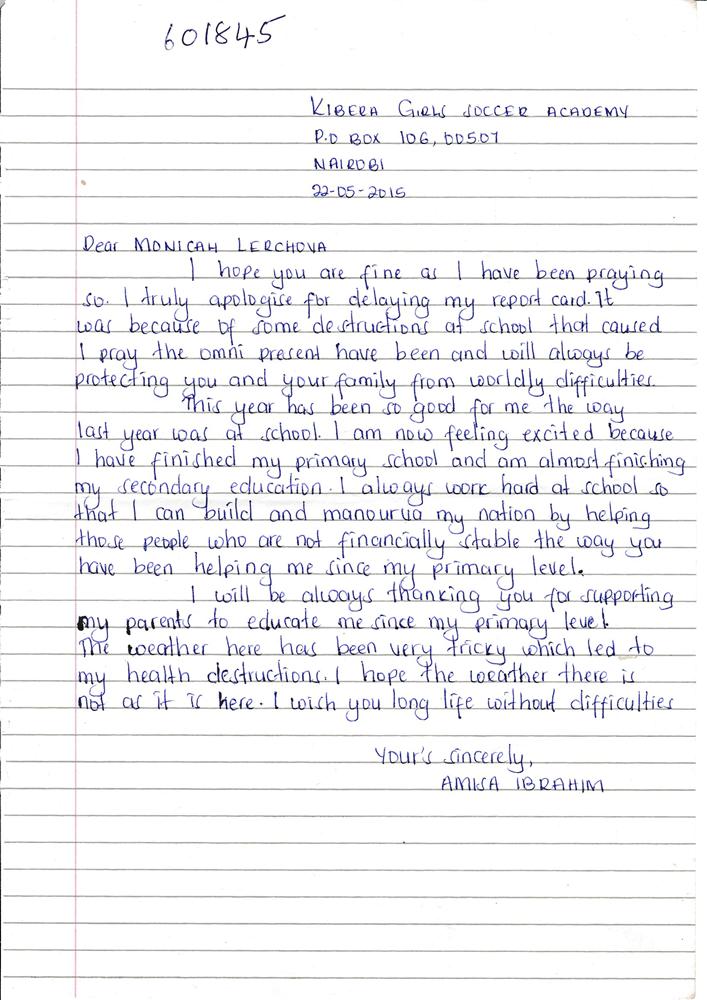 601845
KIBERA GIRLS SOCCER ACADEMY
P.O BOX 106, 00507
NAIROBI
22-05-2015
Dear MONICAH LERCHOVA
I hope you are fine as I have been praying
so. I truly apologise for delaying my report card. It
was because of some destructions at school that caused
I pray the omni present have been and will always be
protecting you and your family from worldly difficulties.
This year has been so good for me the way
last year was at school. I am now feeling excited because
I have finished my primary school and am almost finishing
my secondary education. I always work hard at school so
that I can build and manourua my nation by helping
those people who are not financially stable the way you
have been helping me since my primary level.
I will be always thanking you for supporting
my parents to educate me since my primary level.
The weather here has been very tricky which led to
my health destructions. I hope the weather there is
not as it is here. I wish you long life without difficulties
Your's sincerely,
AMISA IBRAHIM